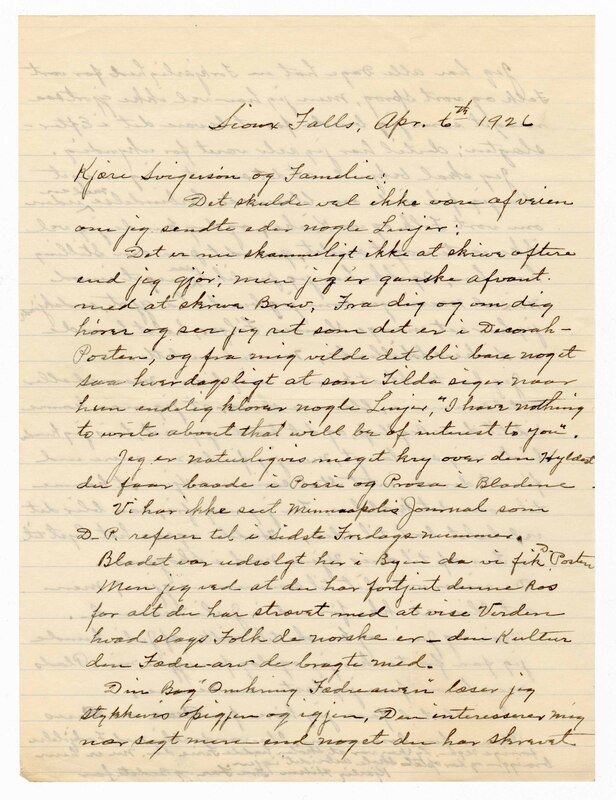 Sioux Falls, Apr. 6th 1926
Kjære Svigersøn og Familie:
Det skulde vel ikke være af veien
om jeg sendte eder nogle Linjer:
Det er nu skammeligt ikke at skrive oftere
end jeg gjør, men jeg er ganske afvant
med at skrive Brev, Fra dig og om dig
hører og ser jeg ret som det er i Decorah-
Posten, og fra mig vilde det bli bare noget
saa hverdagsligt at som Tilda siger naar
hun endelig klorer nogle Linjer, "I have nothing
to write about that will be of interest to you".
Jeg er naturligvis meget kry over den Hyldest
du faar baade i Poesi og Prosa i Bladene.
Vi har ikke seet Minneapolis Journal som
D-P. referer til i Sidste Fredags nummer.
Bladet var udsolgt her i Byen da vi fik D-Posten
Men jeg ved at du har fortjent denne Ros
for alt du har strævet med at vise Verden
hvad slags Folk de norske er – den Kultur
den Fædre-arv de bragte med.
Din Bog "Omkring Fædrearven" læser jeg
stykkevis opigjen og igjen, Den interesserer mig
nær sagt mere end noget du har skrevet